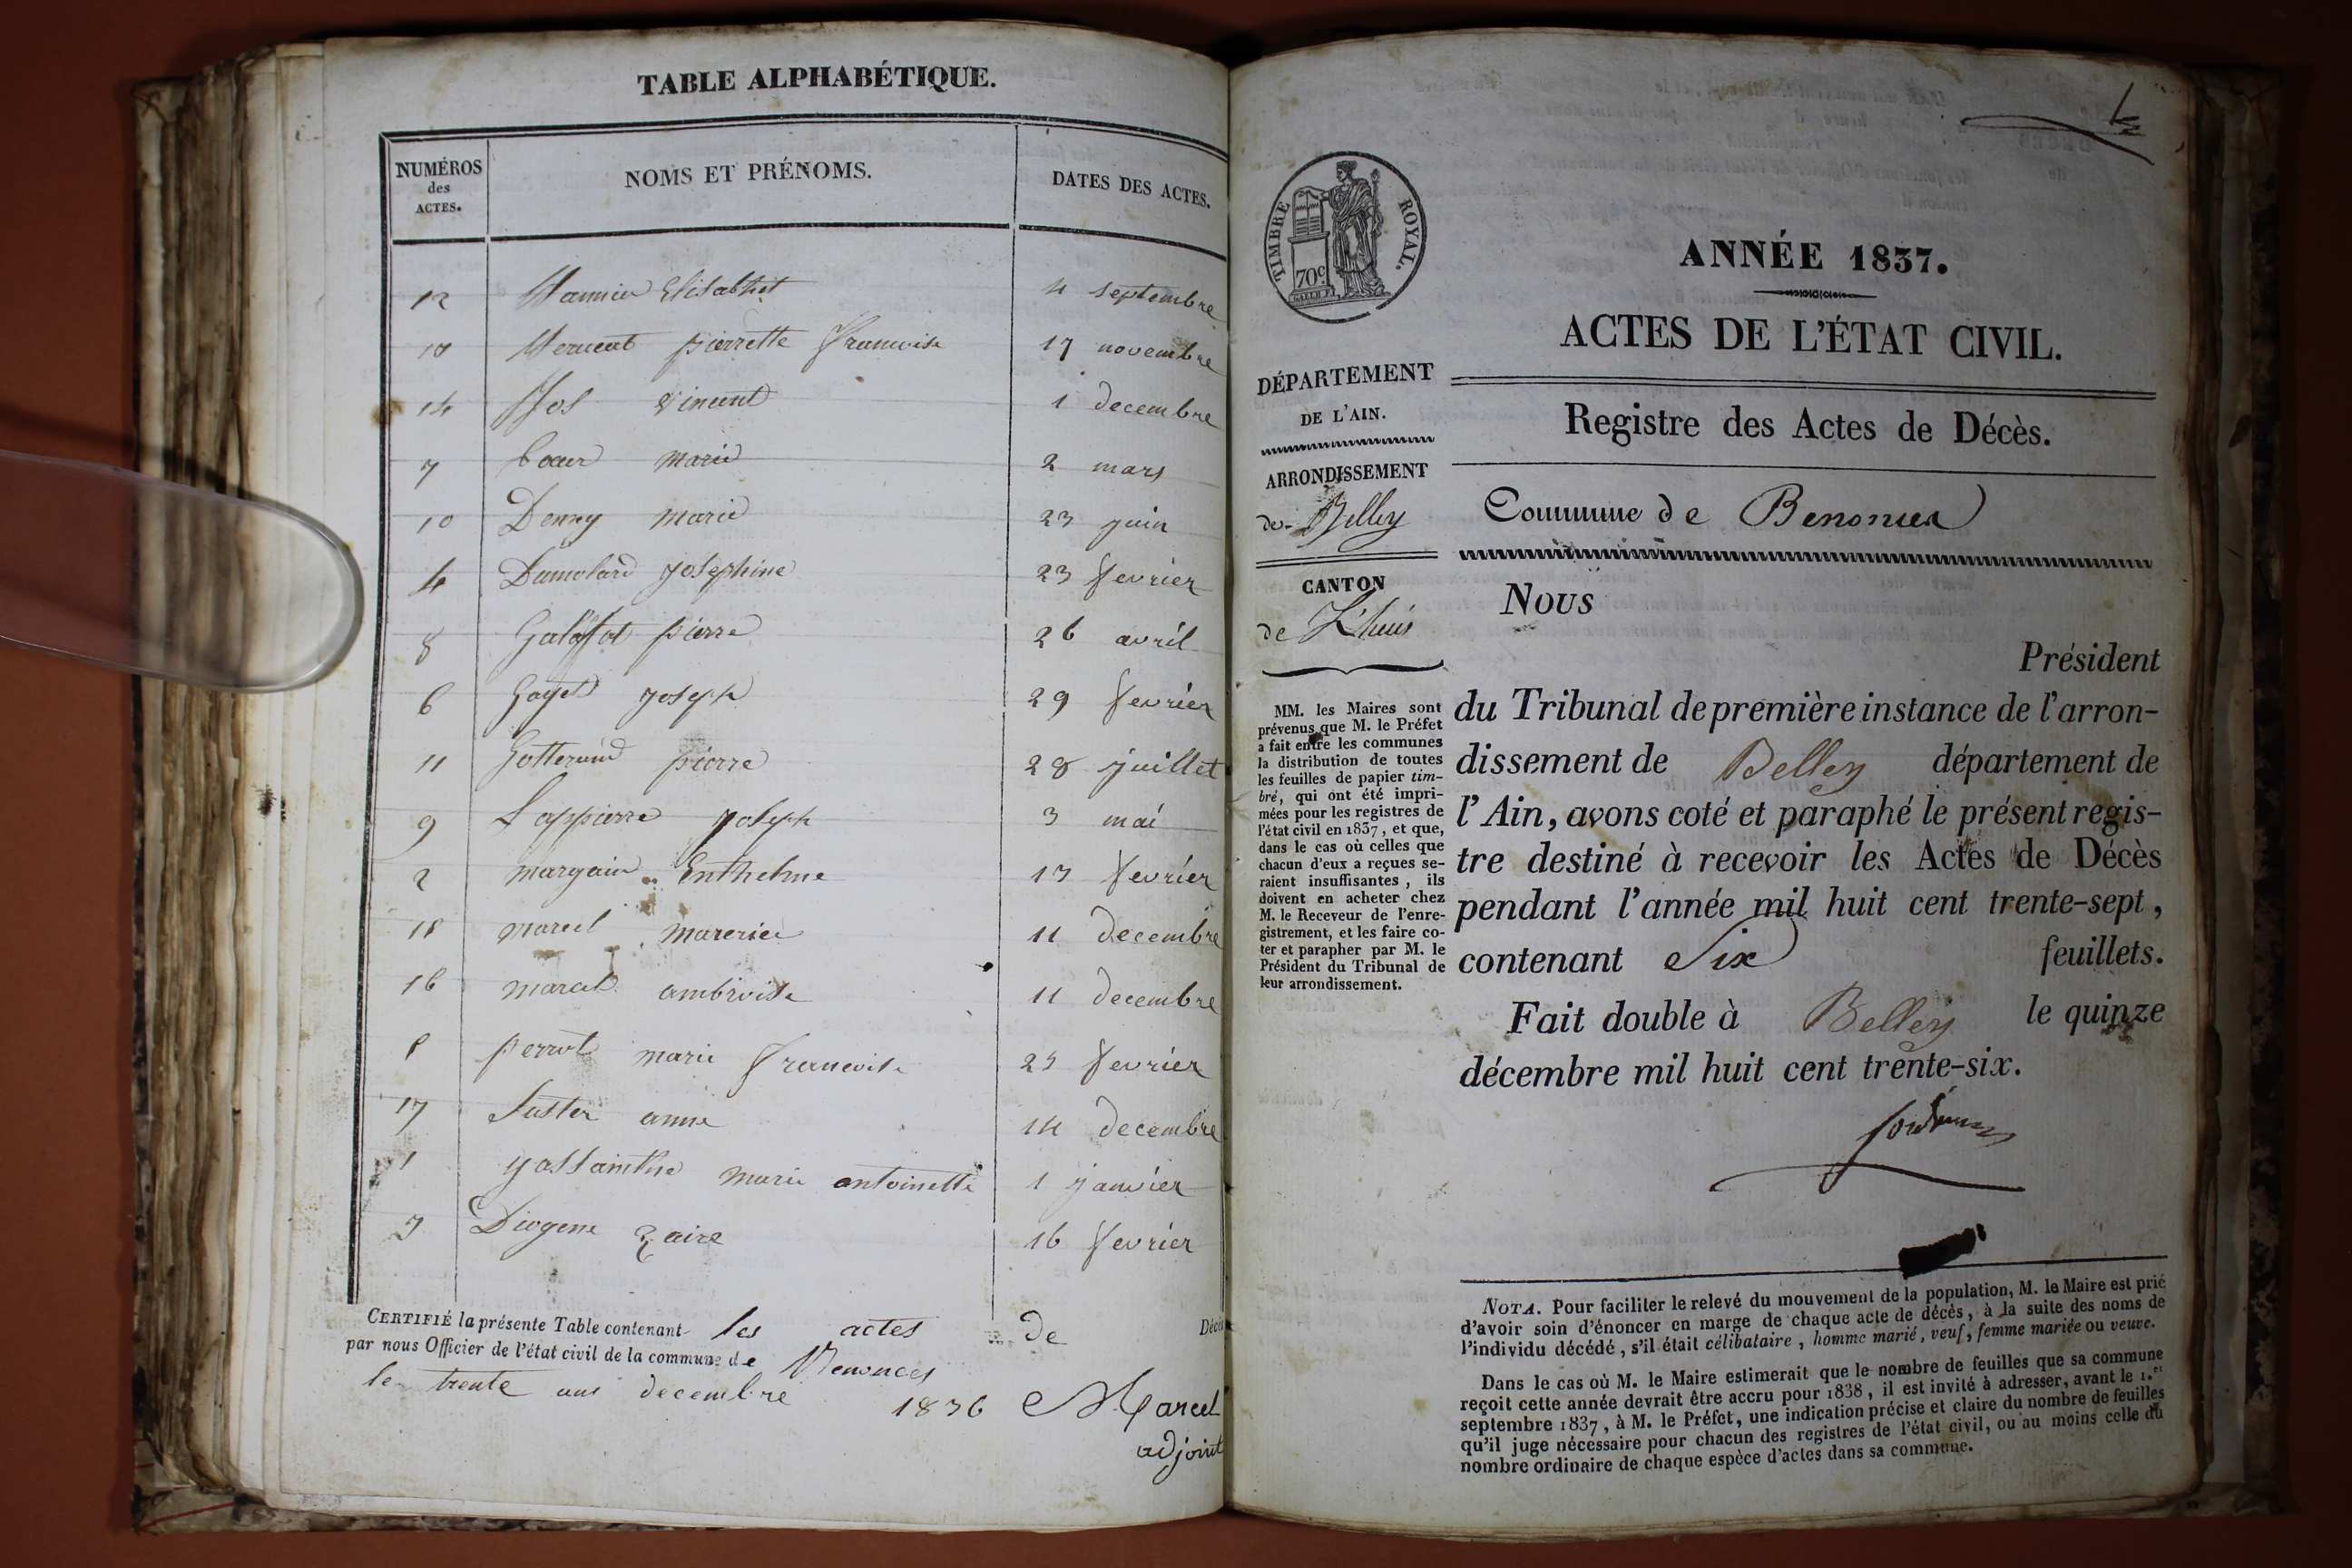 TABLE ALPHABÉTIQUE.
NUMÉROS
des
ACTES.
NOMS ET PRÉNOMS.
DATES DES ACTES.
12 Elisabhet 4 septembre
pierrette francoise 17 novembre
14 vincent 1 decembre
7 marie 2 mars
10 Denny marie 23 juin
4 Dumolard josephine 23 fevrier
8 pierre 26 avril
6 Goyet joseph 29 fevrier
11 pierre 28 juillet
9 Lappierre joseph 3 mai
2 margain Enthelme 13 fevrier
marcel 11 decembre
16 marcel ambroise 11 decembre
perrot marie francoise fevrier
17 Suster anne 14 decembre
1 marie antoinette 1 janvier
3 Diogene zaire 16 fevrier
CERTIFIÉ la présente Table contenant les actes de Décès
par nous Officier de l'état civil de la commune de Benonces
le trente uns decembre 1836 Marcel
adjoint
TIMBRE ROYAL.
70c
ANNÉE 1837.
ACTES DE L'ÉTAT CIVIL.
DÉPARTEMENT
DE L'AIN.
ARRONDISSEMENT
de Belley
CANTON
de L'huis
MM. les Maires sont
prévenus que M. le Préfet
a fait entre les communes
la distribution de toutes
les feuilles de papier tim-
bré, qui ont été impri-
mées pour les registres de
l'état civil en 1837, et que,
dans le cas où celles que
chacun d'eux a reçues se-
raient insuffisantes, ils
doivent en acheter chez
M. le Receveur de l'enre-
gistrement, et les faire co-
ter et parapher par M. le
Président du Tribunal de
leur arrondissement.
Registre des Actes de Décès.
Commune de Benonces
Nous
Président
du Tribunal de première instance de l'arron-
dissement de Belley département de
l'Ain, avons coté et paraphé le présent regis-
tre destiné à recevoir les Actes de Décès
pendant l'année mil huit cent trente-sept,
contenant Six feuillets.
Fait double à Belley le quinze
décembre mil huit cent trente-six.
NOTA. Pour faciliter le relevé du mouvement de la population, M. le Maire est prié
d'avoir soin d'énoncer en marge de chaque acte de décès, à la suite des noms de
l'individu décédé, s'il était célibataire, homme marié, veuf, femme mariée ou veuve.
Dans le cas où M. le Maire estimerait que le nombre de feuilles que sa commune
reçoit cette année devrait être accru pour 1838, il est invité à adresser, avant le 1.er
septembre 1837, à M. le Préfet, une indication précise et claire du nombre de feuilles
qu'il juge nécessaire pour chacun des registres de l'état civil, ou au moins celle du
nombre ordinaire de chaque espèce d'actes dans sa commune.